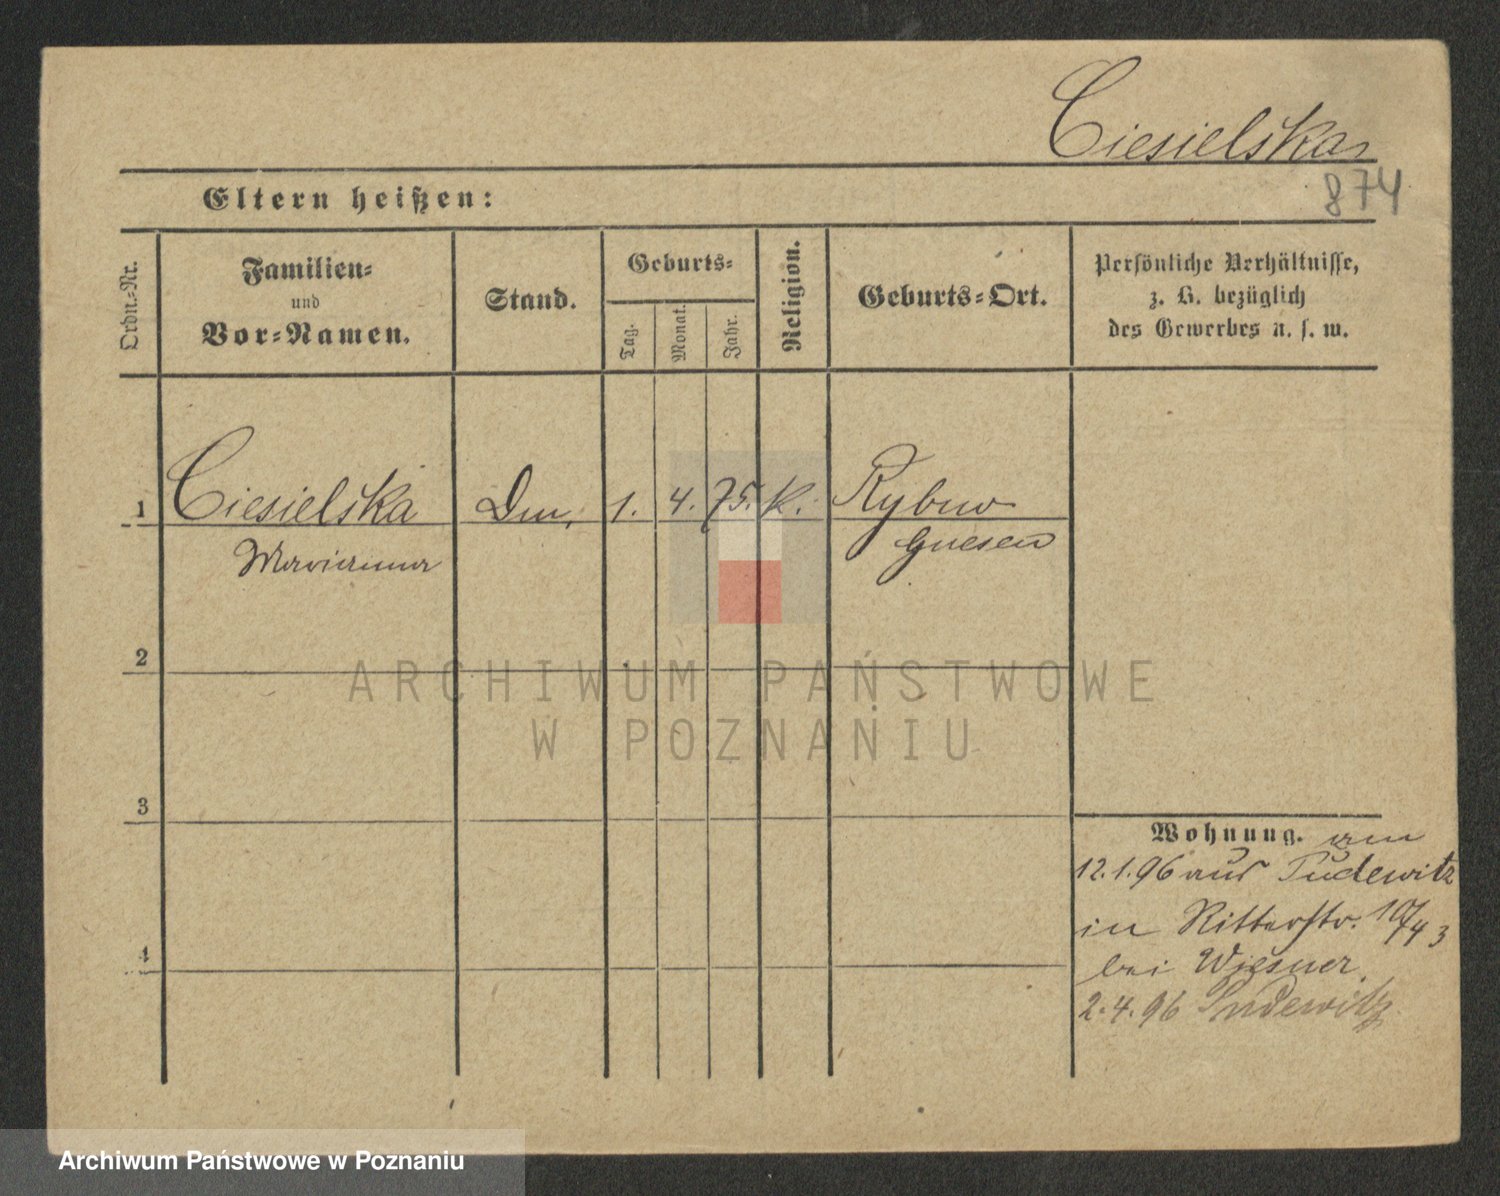 Ciesielska
874
Eltern heißen:
Ordn.-Nr.
Familien-
und
Vor-Namen.
Stand.
Geburts-
Tag.
Monat.
Jahr.
Religion.
Geburts-Ort.
Persönliche Verhältnisse,
z. B. bezüglich
des Gewerbes u. s. w.
1 Ciesielska Dm, 1. 4. 75. K. Rybno
Marianna Gnesen
2
ARCHIWUM PAŃSTWOWE
W POZNANIU
3
Wohnung. am
12.1.96 aus Pudewitz
in Ritterstr. 10/43
bei Wiesner
4
2.4.96 Pudewitz
Archiwum Państwowe w Poznaniu